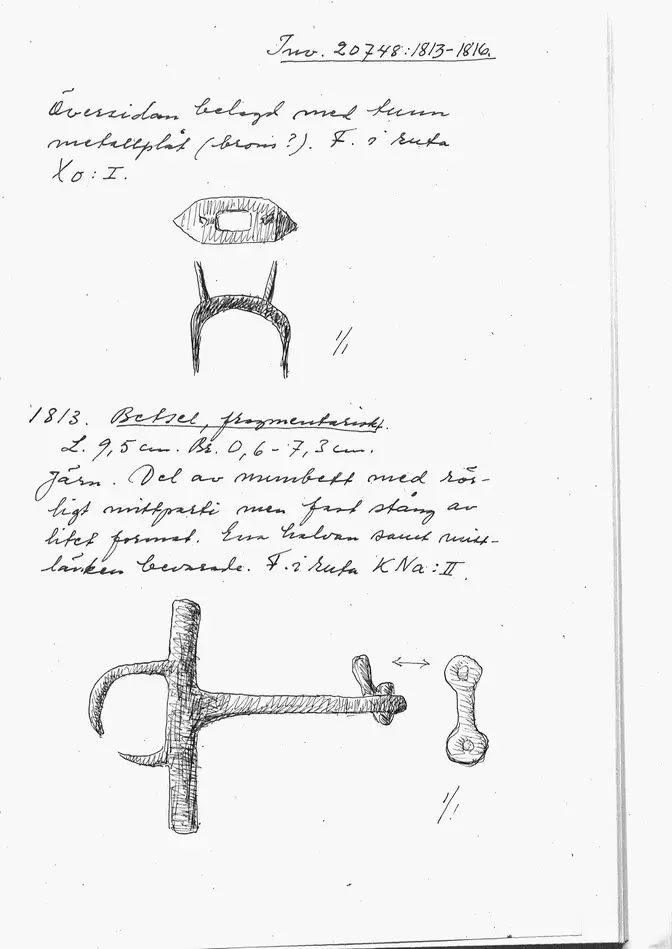 Inv. 20748:1813-1816.
Översidan belagd med tunn
metallplåt (brons?). F. i ruta
Xo: I.
1/1
1813. Betsel, fragmentariskt.
L. 9,5 cm. Br. 0,6-7,3 cm.
Järn. Del av munbett med rör-
ligt mittparti men fast stång av
litet format. Ena halvan samt mitt-
länken bevarade. F. i ruta KNa: II.
1/1